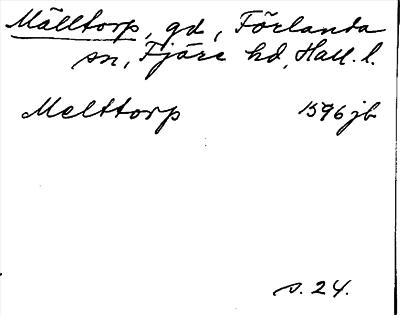 Mälltorp, gd, Förlanda
sn, Fjäre hd, Hall. l.
Melttorp 1596 jb
s. 24.